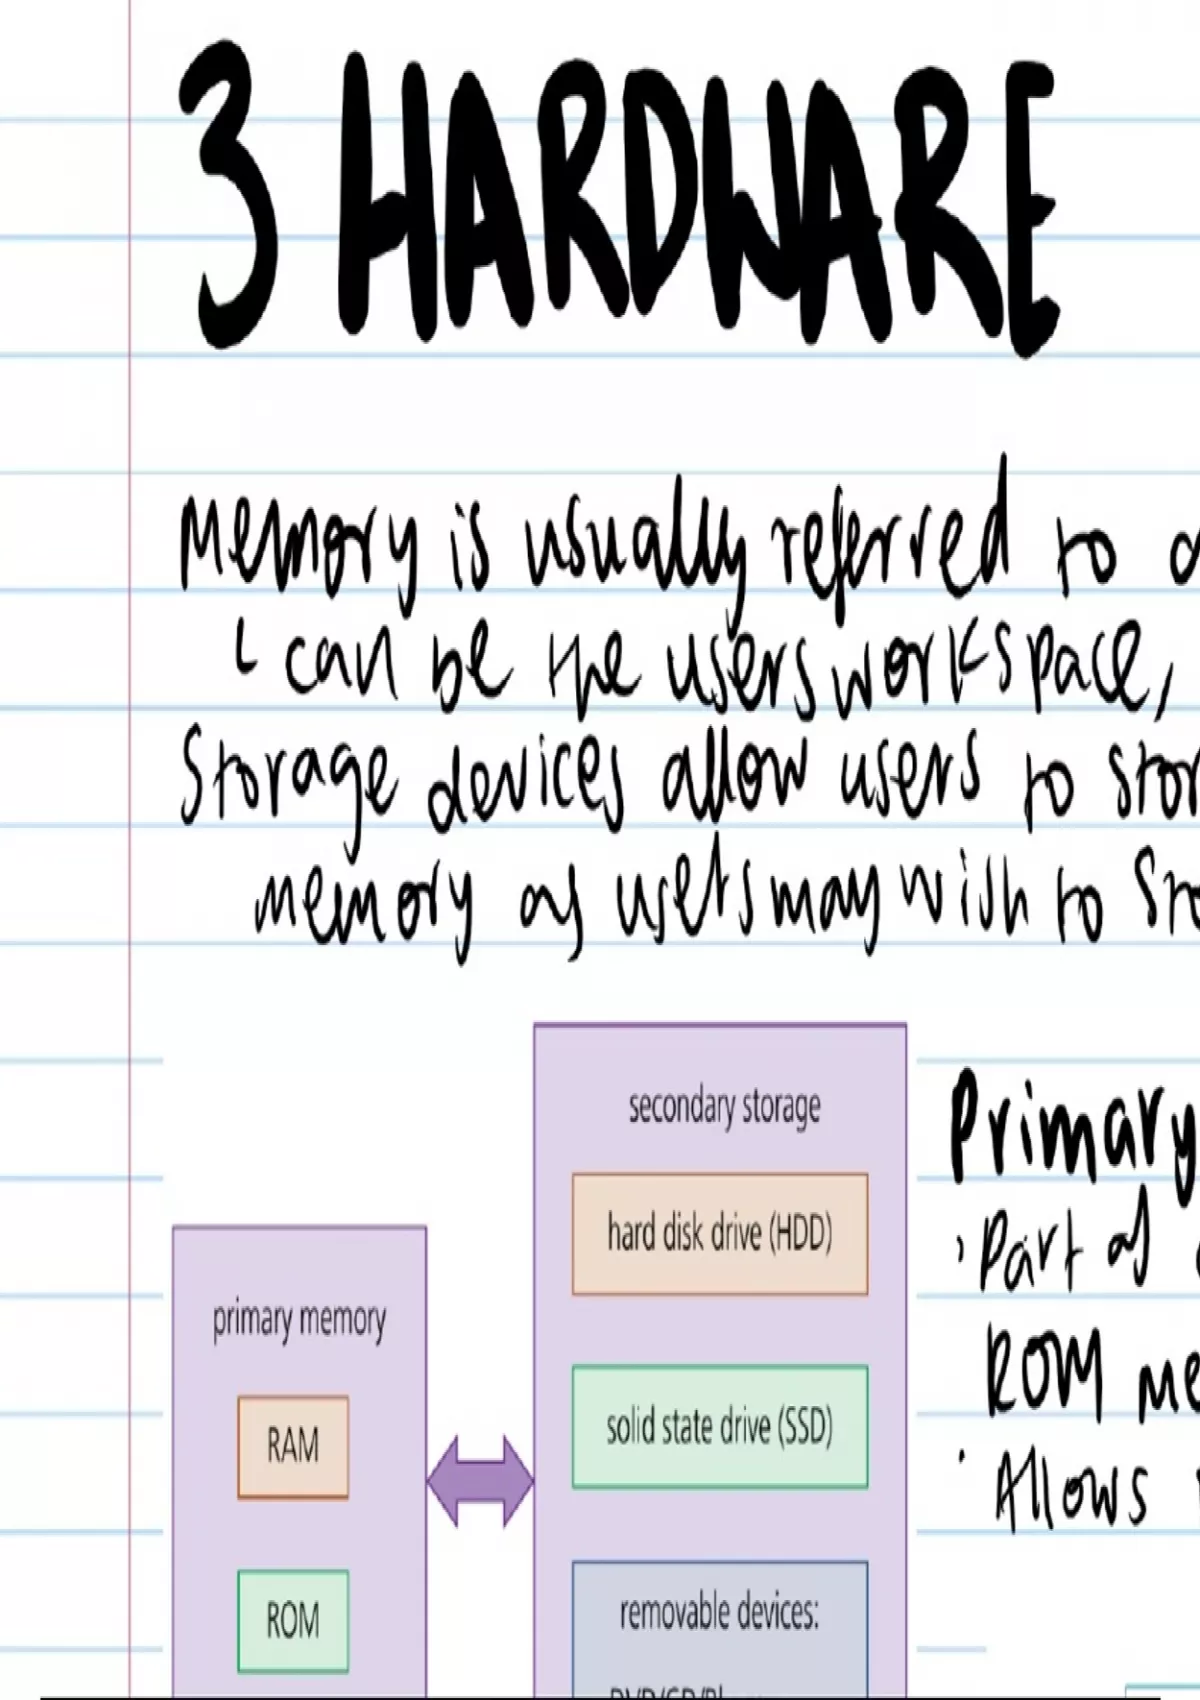 3 HARDWARE
Memory is usually referred to
can be the users workspace,
Storage devices allow users to
memory as users may wish to
secondary storage
hard disk drive (HDD)
primary memory
RAM
solid state drive (SSD)
ROM
removable devices:
Primary
Part of
ROM
Allows